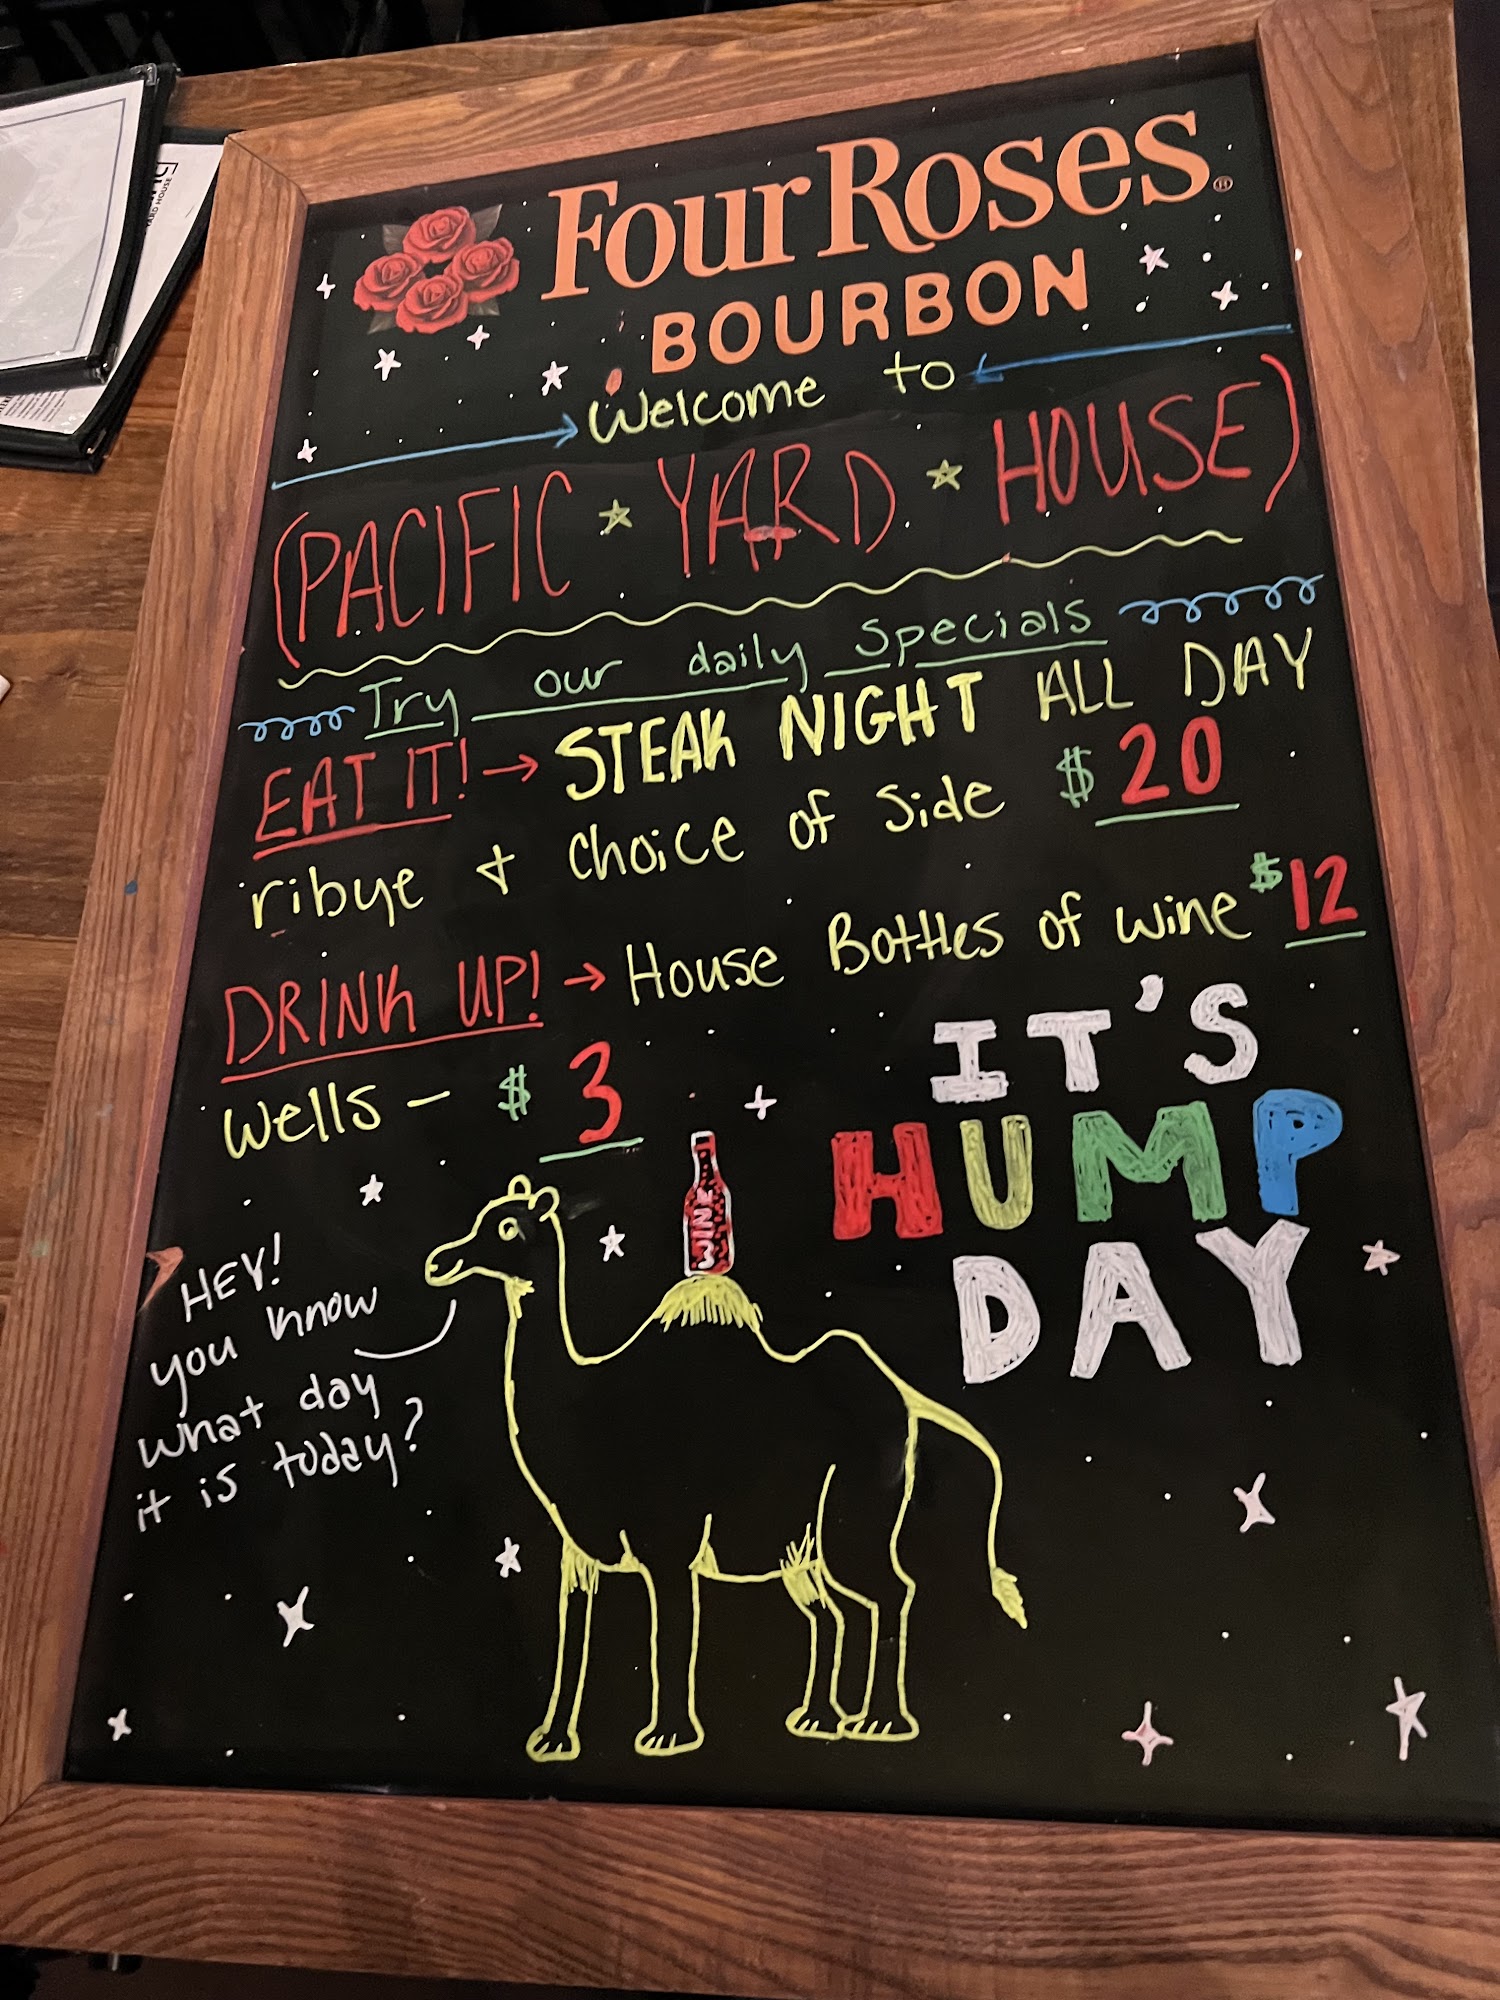 Four Roses®
BOURBON
Welcome to
(PACIFIC YARD HOUSE)
Try our daily specials
EAT IT! → STEAK NIGHT ALL DAY
ribye + choice of side $20
DRINK UP! → House Bottles of wine $12
wells - $3
IT'S
HUMP
DAY
HEY!
you know
what day
it is today?
WINE
YARD HOUSE